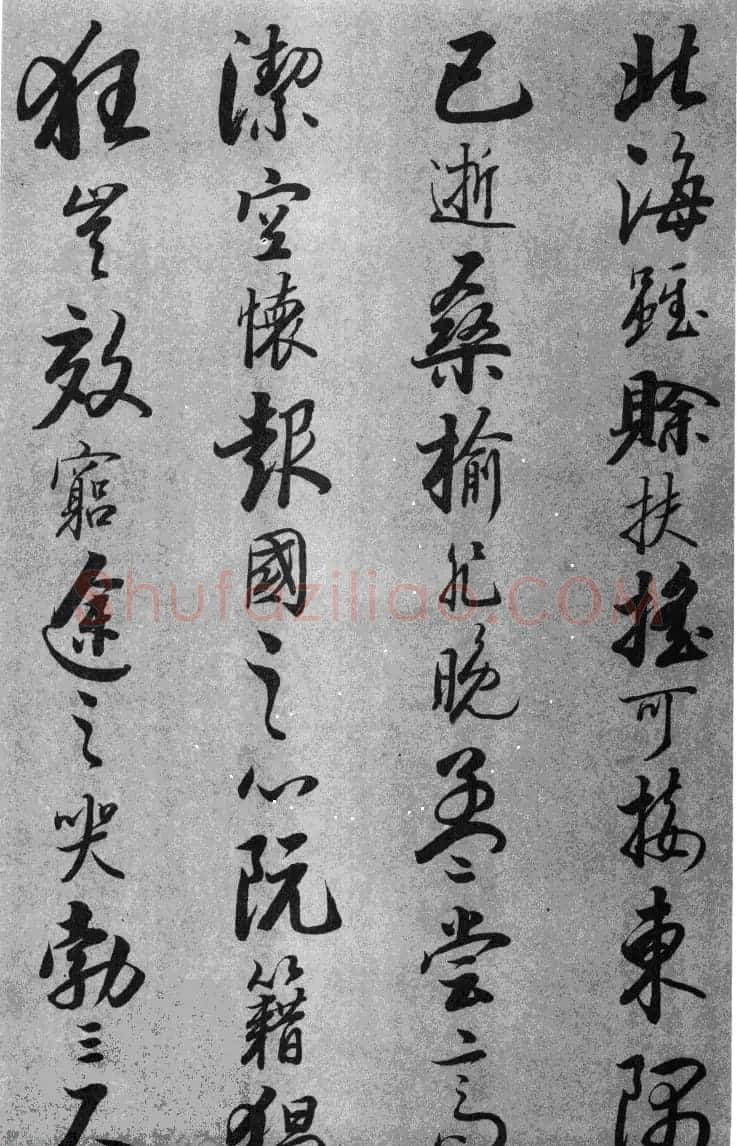 北海雖賒扶搖可接東隅
已逝桑榆非晚孟嘗高
潔空懷報國之心阮籍猖
狂豈效窮途之哭勃三尺
Shufaziliao.COM